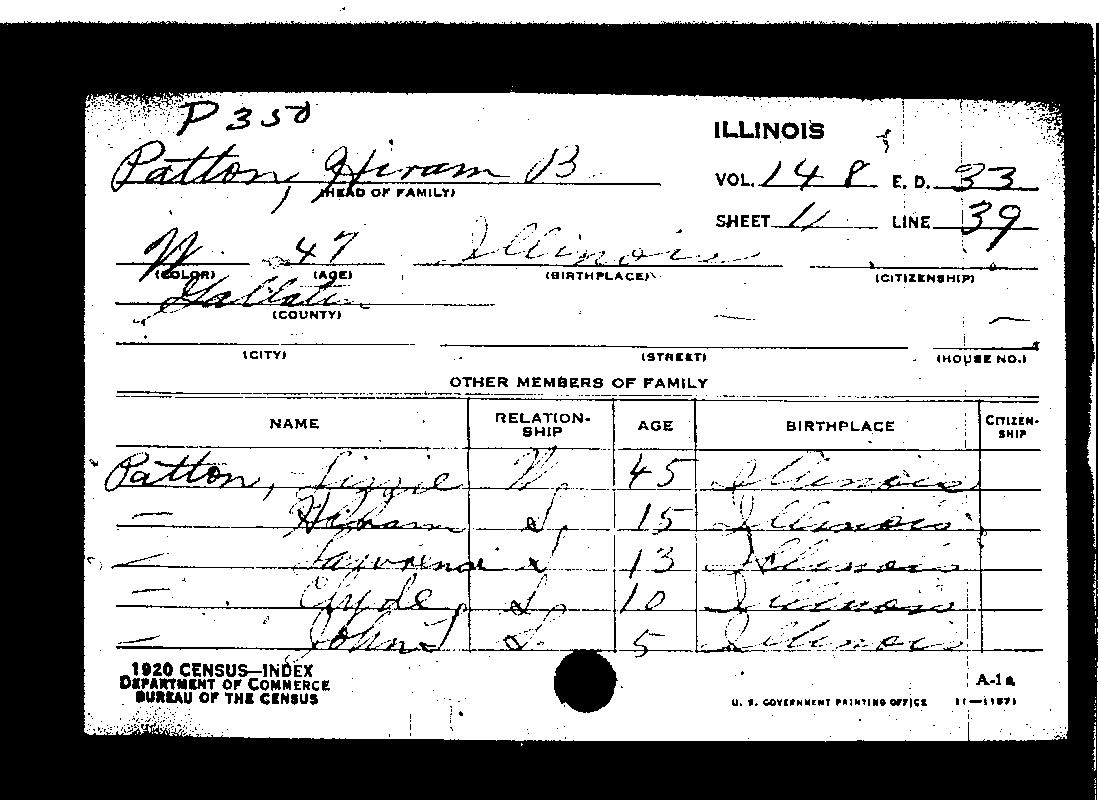 P350
ILLINOIS
Patton, Hiram B
(HEAD OF FAMILY)
VOL. 148 E. D. 33
SHEET 11 LINE 39
W 47 Illinois
(COLOR) (AGE) (BIRTHPLACE) (CITIZENSHIP)
Gallatin
(COUNTY)
— —
(CITY) (STREET) (HOUSE NO.)
OTHER MEMBERS OF FAMILY
NAME RELATION-SHIP AGE BIRTHPLACE CITIZEN-SHIP
Patton, Lizzie W 45 Illinois
— Hiram S 15 Illinois
— S 13 Illinois
— Clyde S 10 Illinois
— John S 5 Illinois
1920 CENSUS—INDEX
DEPARTMENT OF COMMERCE
BUREAU OF THE CENSUS
A-1a
U. S. GOVERNMENT PRINTING OFFICE